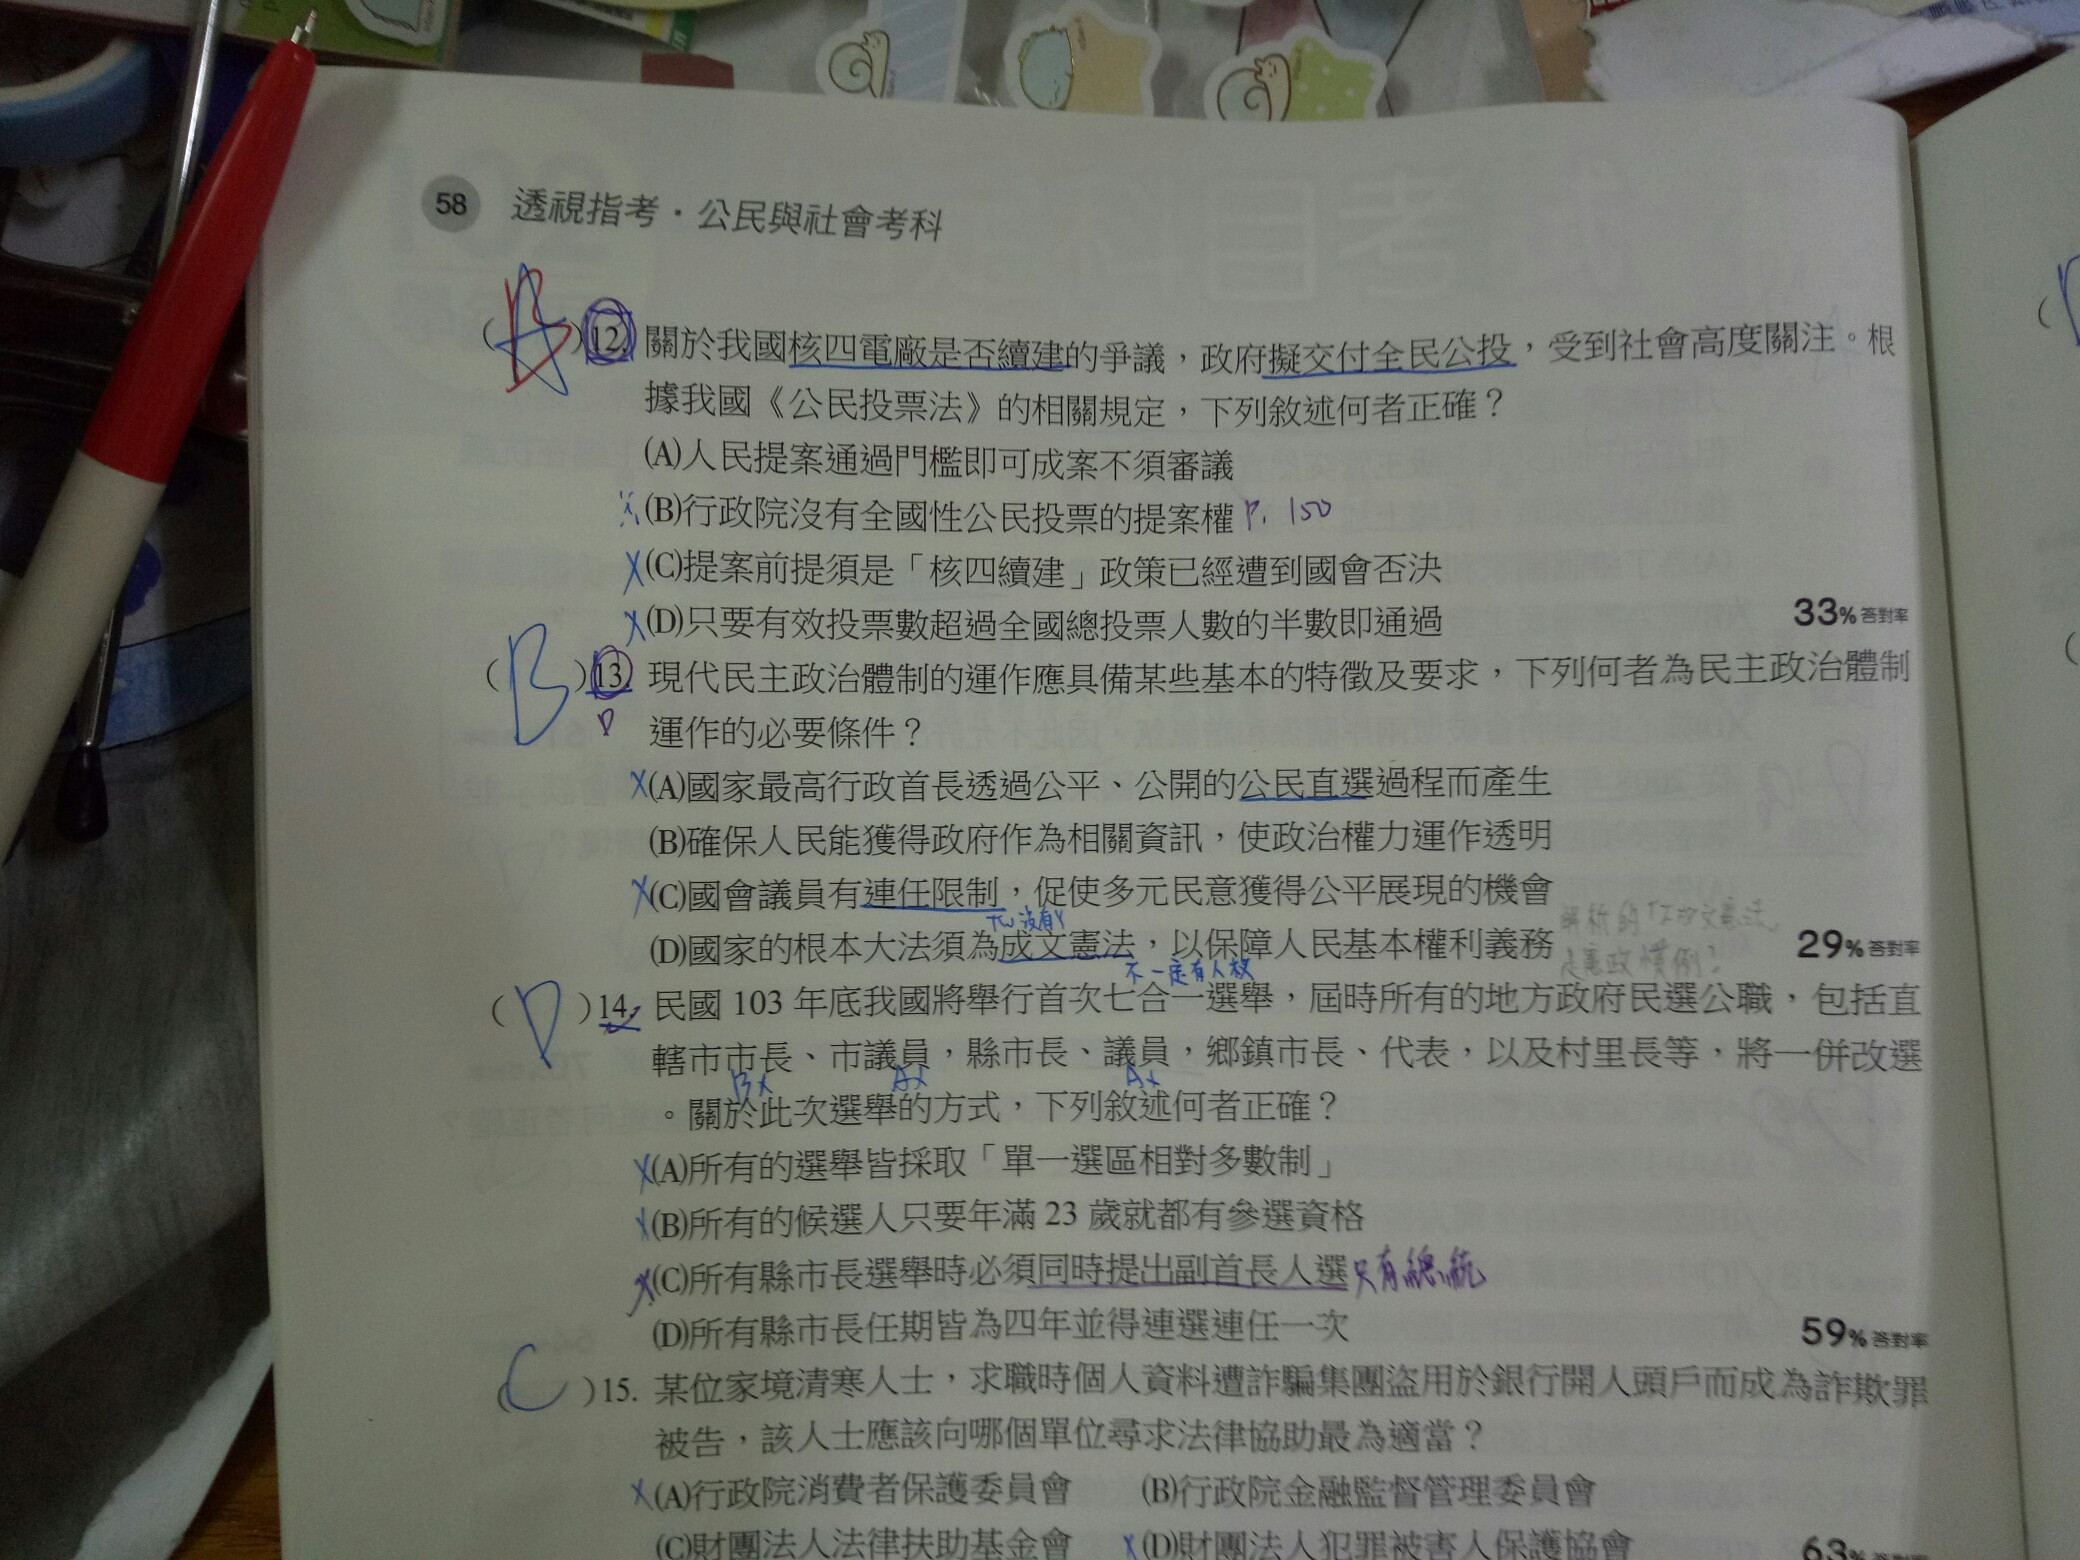 58 透視指考·公民與社會考科
(B)12. 關於我國核四電廠是否續建的爭議，政府擬交付全民公投，受到社會高度關注。根
據我國《公民投票法》的相關規定，下列敘述何者正確？
(A)人民提案通過門檻即可成案不須審議
(B)行政院沒有全國性公民投票的提案權 P. 150
X(C)提案前提須是「核四續建」政策已經遭到國會否決
X(D)只要有效投票數超過全國總投票人數的半數即通過
33%答對率
(B)13. 現代民主政治體制的運作應具備某些基本的特徵及要求，下列何者為民主政治體制
運作的必要條件？
X(A)國家最高行政首長透過公平、公開的公民直選過程而產生
(B)確保人民能獲得政府作為相關資訊，使政治權力運作透明
X(C)國會議員有連任限制，促使多元民意獲得公平展現的機會
TW沒有
(D)國家的根本大法須為成文憲法，以保障人民基本權利義務
不一定有人權
29%答對率
(D)14. 民國 103 年底我國將舉行首次七合一選舉，屆時所有的地方政府民選公職，包括直
轄市市長、市議員，縣市長、議員，鄉鎮市長、代表，以及村里長等，將一併改選
BX AX AX
。關於此次選舉的方式，下列敘述何者正確？
X(A)所有的選舉皆採取「單一選區相對多數制」
X(B)所有的候選人只要年滿 23 歲就都有參選資格
X(C)所有縣市長選舉時必須同時提出副首長人選 只有總統
(D)所有縣市長任期皆為四年並得連選連任一次
59%答對率
(C)15. 某位家境清寒人士，求職時個人資料遭詐騙集團盜用於銀行開人頭戶而成為詐欺罪
被告，該人士應該向哪個單位尋求法律協助最為適當？
X(A)行政院消費者保護委員會 (B)行政院金融監督管理委員會
(C)財團法人法律扶助基金會 X(D)財團法人犯罪被害人保護協會
63%答對率